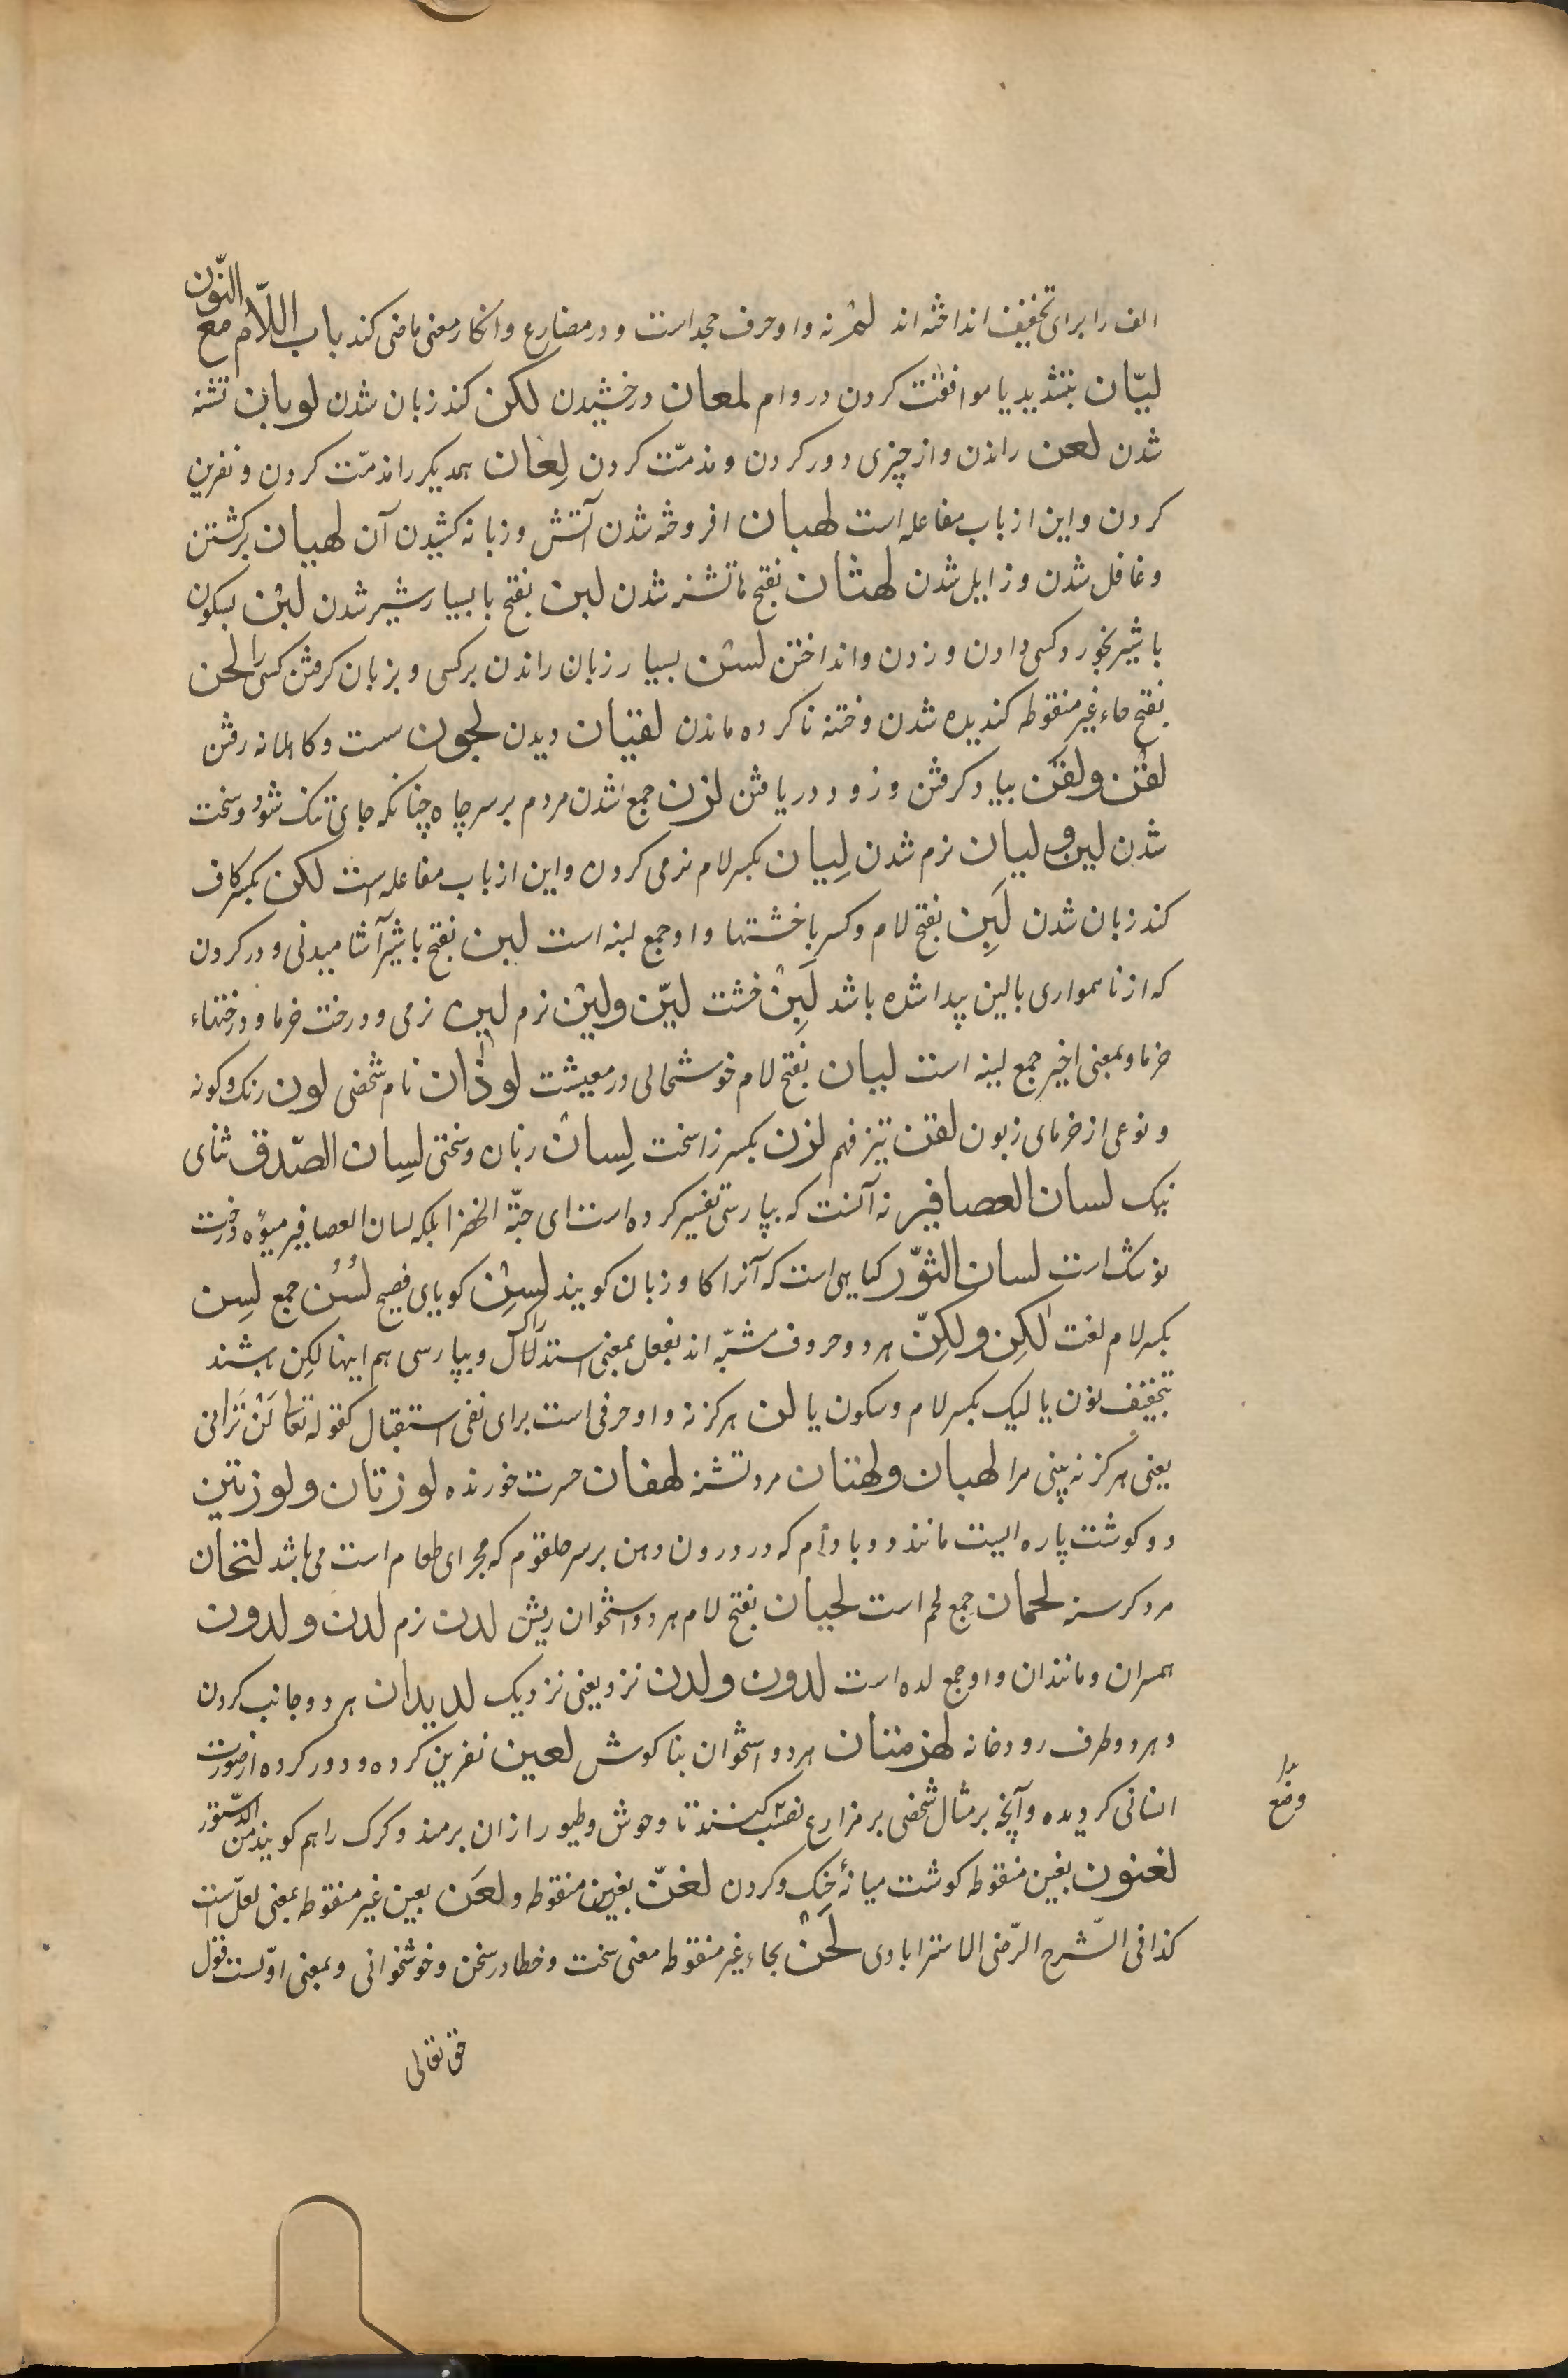 الف را برای تخفیف انداخته اند لم نه و او حرف جحد است و در مضارع و انکار معنی ماضی کند باب اللّام مع النّون
لیّان بتشدید یا موافقت کردن در وام لمعان درخشیدن لکن کند زبان شدن لوبان تشنه
شدن لعن راندن و از چیزی دور کردن و مذمّت کردن لِعان همدیکر را مذمّت کردن و نفرین
کردن و این از باب مفاعله است لهبان افروخته شدن آتش و زبانه کشیدن آن لهیان برکشتن
و غافل شدن و زایل شدن لهثان بفتح ها تشنه شدن لبن بفتح با بسیار شیر شدن لبْن بسکون
با شیر بخورد کسی دادن و زدن و انداختن لسْن بسیار زبان راندن بر کسی و بزبان کرفتن کسی را لحن
بفتح حاء غیر منقوطه کندیده شدن و ختنه ناکرده ماندن لقیان دیدن لجون سست و کاهلانه رفتن
لقْن و لقَن بیاد کرفتن و زود دریافتن لزن جمع شدن مردم بر سر چاه چنانکه جای تنک شود و سخت
شدن لین و لیان نرم شدن لِیان بکسر لام نرمی کردن و این از باب مفاعله است لکن بکسر کاف
کند زبان شدن لَبِن بفتح لام و کسر با خشتها و او جمع لبنه است لبن بفتح با شیر آشامیدنی و درد کردن
که از ناهمواری بالین پیدا شده باشد لَبِنْ خشت لیّن و لیْن نرم لین نرمی و درخت خرما و درختهاء
خرما و بمعنی اخیر جمع لینه است لیان بفتح لام خوشحالی در معیشت لوذان نام شخصی لون رنک و کونه
و نوعی از خرمای زبون لقن تیز فهم لزن بکسر زا سخت لِسان زبان و سختی لسِان الصّدق ثنای
نیک لسان العصافیر نه آنست که بپارسی تفسیر کرده است ای حبّة الخضرا بلکه لسان العصافیر میوه درخت
است لسان الثّور کیاهی است که آنرا کاو زبان کویند لسِن کویای فصیح لُسُن جمع لسِن
بکسر لام لغت لٰکِن و لکِنّ هر دو حروف مشبّه اند بفعل بمعنی استدراک و بپارسی هم اینها لکِن باشند
بتخفیف نون یا لیک بکسر لام و سکون یا لن هرکز نه و او حرفی است برای نفی استقبال کقوله تعالی لَنْ تَرانی
یعنی هرکز نه بینی مرا لهبان و لهثان مرد تشنه لهفان حسرت خورنده لوزتان و لوزتین
دو کوشت پاره ایست مانند دو بادام که در درون دهن بر سر حلقوم که مجرای طعام است می باشد لتحان
مرد کرسنه لحمان جمع لحم است لحیان بفتح لام هر دو استخوان ریش لدن نرم لدن و لدون
همسران و مانندان و او جمع لده است لدون و لدن نزد یعنی نزدیک لدیدان هر دو جانب کردن
و هر دو طرف رودخانه لهزمتان هر دو استخوان بناکوش لعین نفرین کرده و دور کرده از صورت
انسانی کردیده و آنچه بر مثال شخصی بر مزارع نصب کنند تا وحوش و طیور از ان برمند و کرک را هم کویند من الدّستور
لغنون بغین منقوطه کوشت میانهٔ حنک و کردن لغنّ بغین منقوطه و لعَن بعین غیر منقوطه بمعنی لعلّ است
کذا فی الشّرح الرّضی الاسترابادی لَحَنْ بحاء غیر منقوطه معنی سخت و خطا در سخن و خوشخوانی و بمعنی اوّلست قول
حق تعالی
وضع